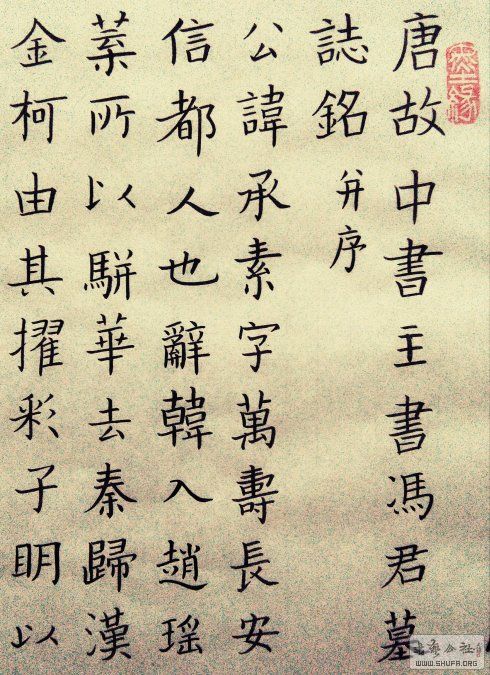 唐故中書主書馮君墓
誌銘并序
公諱承素字萬壽長安
信都人也辭韓入趙瑤
葉所以駢華去秦歸漢
金柯由其擢彩子明以
WWW.SHUFA.ORG